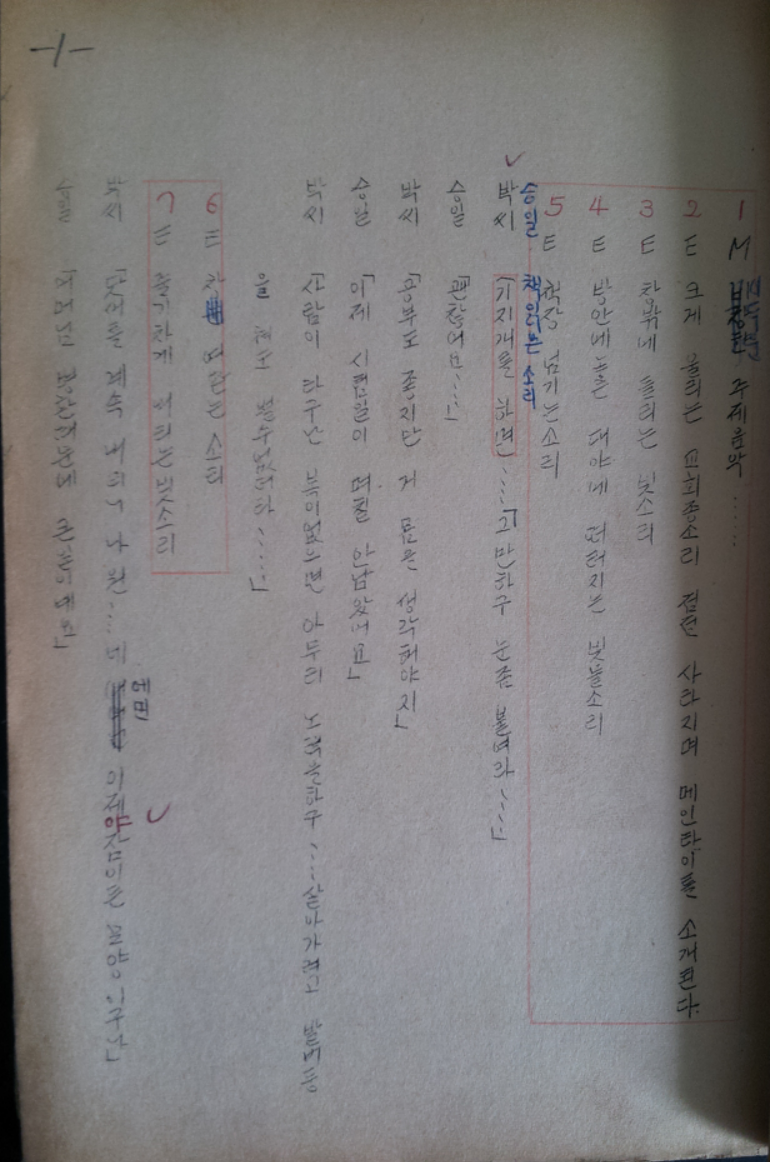 -1-
1 M 주제음악 ......
2 E 크게 울리는 교회종소리 점점 사라지며 메인타이틀 소개된다.
3 E 창밖에 들리는 빗소리
4 E 방안에놓은 대야에 떨어지는 빗물소리
5 E 책장 넘기는소리
승일 책읽는 소리
박씨 (기지개를 하며)....「그만하구 눈좀 붙여라....」
승일 「괜찮어요....」
박씨 「공부도 좋지만 거 몸을 생각해야지」
승일 「이제 시험일이 며칠 안남았어요」
박씨 「사람이 타구난 복이없으면 아무리 노력을하구 ...살아가려고 발버둥
을 쳐도 할수없더라.....」
6 E 창 여닫는 소리
7 E 줄기차게 내리는빗소리
박씨 계속 내리니 나원... 네 에민 이제야잠이든 모양이구나」
승일